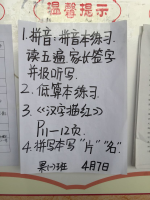 温馨提示
1.拼音:拼音本练习.
读五遍,家长签字
并报听写.
2.低算本练习.
3.《汉字描红》
P11-12页.
4.拼写本写“片”“名”.
4月7日